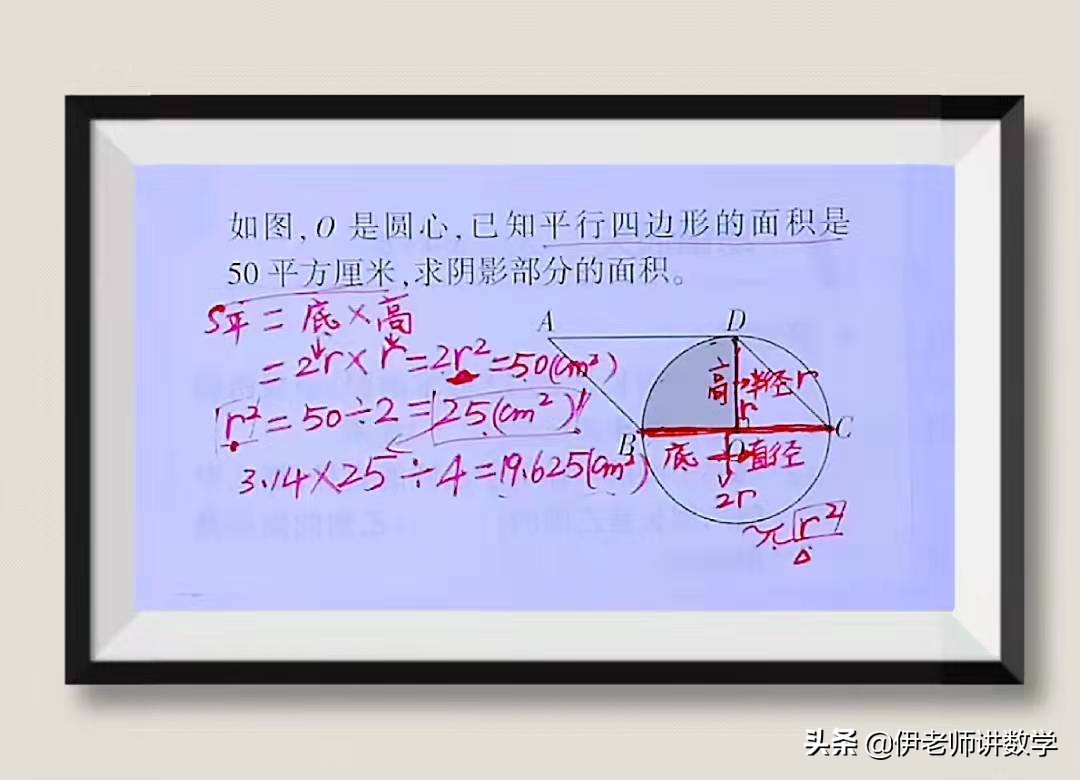 如图,O 是圆心,已知平行四边形的面积是
50 平方厘米,求阴影部分的面积。
S平 = 底 × 高
= 2r × r = 2r² = 50(cm²)
r² = 50 ÷ 2 = 25(cm²)
3.14 × 25 ÷ 4 = 19.625(cm²)
A
D
高
半径 r
r
B
O
C
底
直径
2r
πr²
头条 @伊老师讲数学